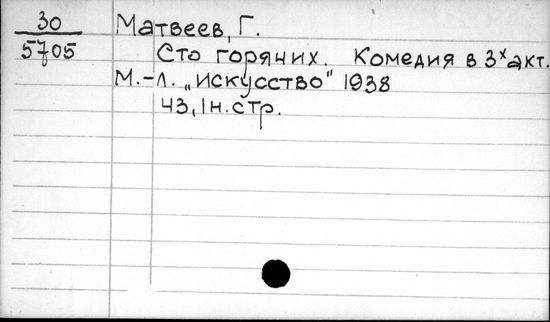 30
5705
Матвеев, Г.
Сто горячих. Комедия в 3х акт.
М.-Л. „Искусство" 1938
43, 1н. стр.